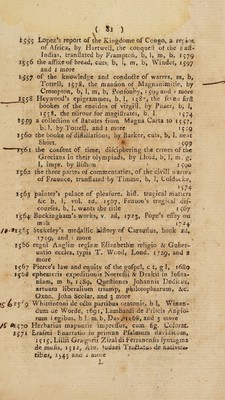 ( 81 )
1555 Lopez's report of the Kingdome of Congo, a region
of Africa, by Hartwell, the conquest of the East-
Indian, translated by Frampton, b, l, m, b, 1579
1556 the assise of bread, cuts, b, l, m, b, Windet, 1597
and 1 more
1557 of the knowledge and conducte of warres, m, b,
Tottell, 1578, the mansion of Magnanimitie, by
Crompton, b, l, m, l, Ponsonby, 1599 and 1 more
1558 Heywood's epigrammes, b, l, 1587, the seven first
bookes of the eneidos of virgill, by Phaer, b, l,
1558, the mirour for magistrates, b, l, 1574
1559 a collection of statutes from Magna Carta to 1557,
b, l, by Tottell, and 1 more 1559
1560 the booke of distillations, by Barker, cuts, b, l, next
Short, 1597
1561 the consent of time, disciphering the errors of the
Grecians in their olympiads, by Lloid, b, l, m, g,
l, impr. by Bishop 1590
1562 the three partes of commentaries, of the civill warres
of Fraunce, translated by Timme, b, l, Coldocke,
1574
1563 painter's palace of pleasure, hist. tragical matters
&c b, l, vol. 2d, 1567, Fenton's tragical dis-
courses, b, l, wants the title 1567
1564 Buckingham's works, v. 2d, 1715, Pope's essay on
man 1744
1565 Stukeley's medallic history of Carausius, book 2d,
1759, and 1 more
1566 regni Angliæ regiæ Elizabethæ religio & Guber-
natio eccles, typis T. Wood, Lond. 1729, and 2
more
1567 Pierce's law and equity of the gospel, c t, gl, 1686
1568 ephemeris expeditionis Norreysii & Draki in Lusita-
niam, m b, 1589, Questiones Johannis Dedicus,
artuum liberalium triump, philosopharum, &c.
Oxon, John Scolar, and 5 more
1569 Whittintoni de octo partibus orationis, b l, Winan-
dum de Worde, 1521, Lambardi de Priscis Anglo-
rum Legibus, b l, m b, Day, 1568, and 3 more
1570 Herbarius mapuante impressus, cum fig. Colorat.
1571 Erasmi Enarratio in primum Psalmum davidicum,
1515, Lillii Gregorii Ziraldi Ferrarensis syntagma
de musis, 1512, Abr. Judaei Tractatus de nativita-
tibus, 1545 and 2 more
L